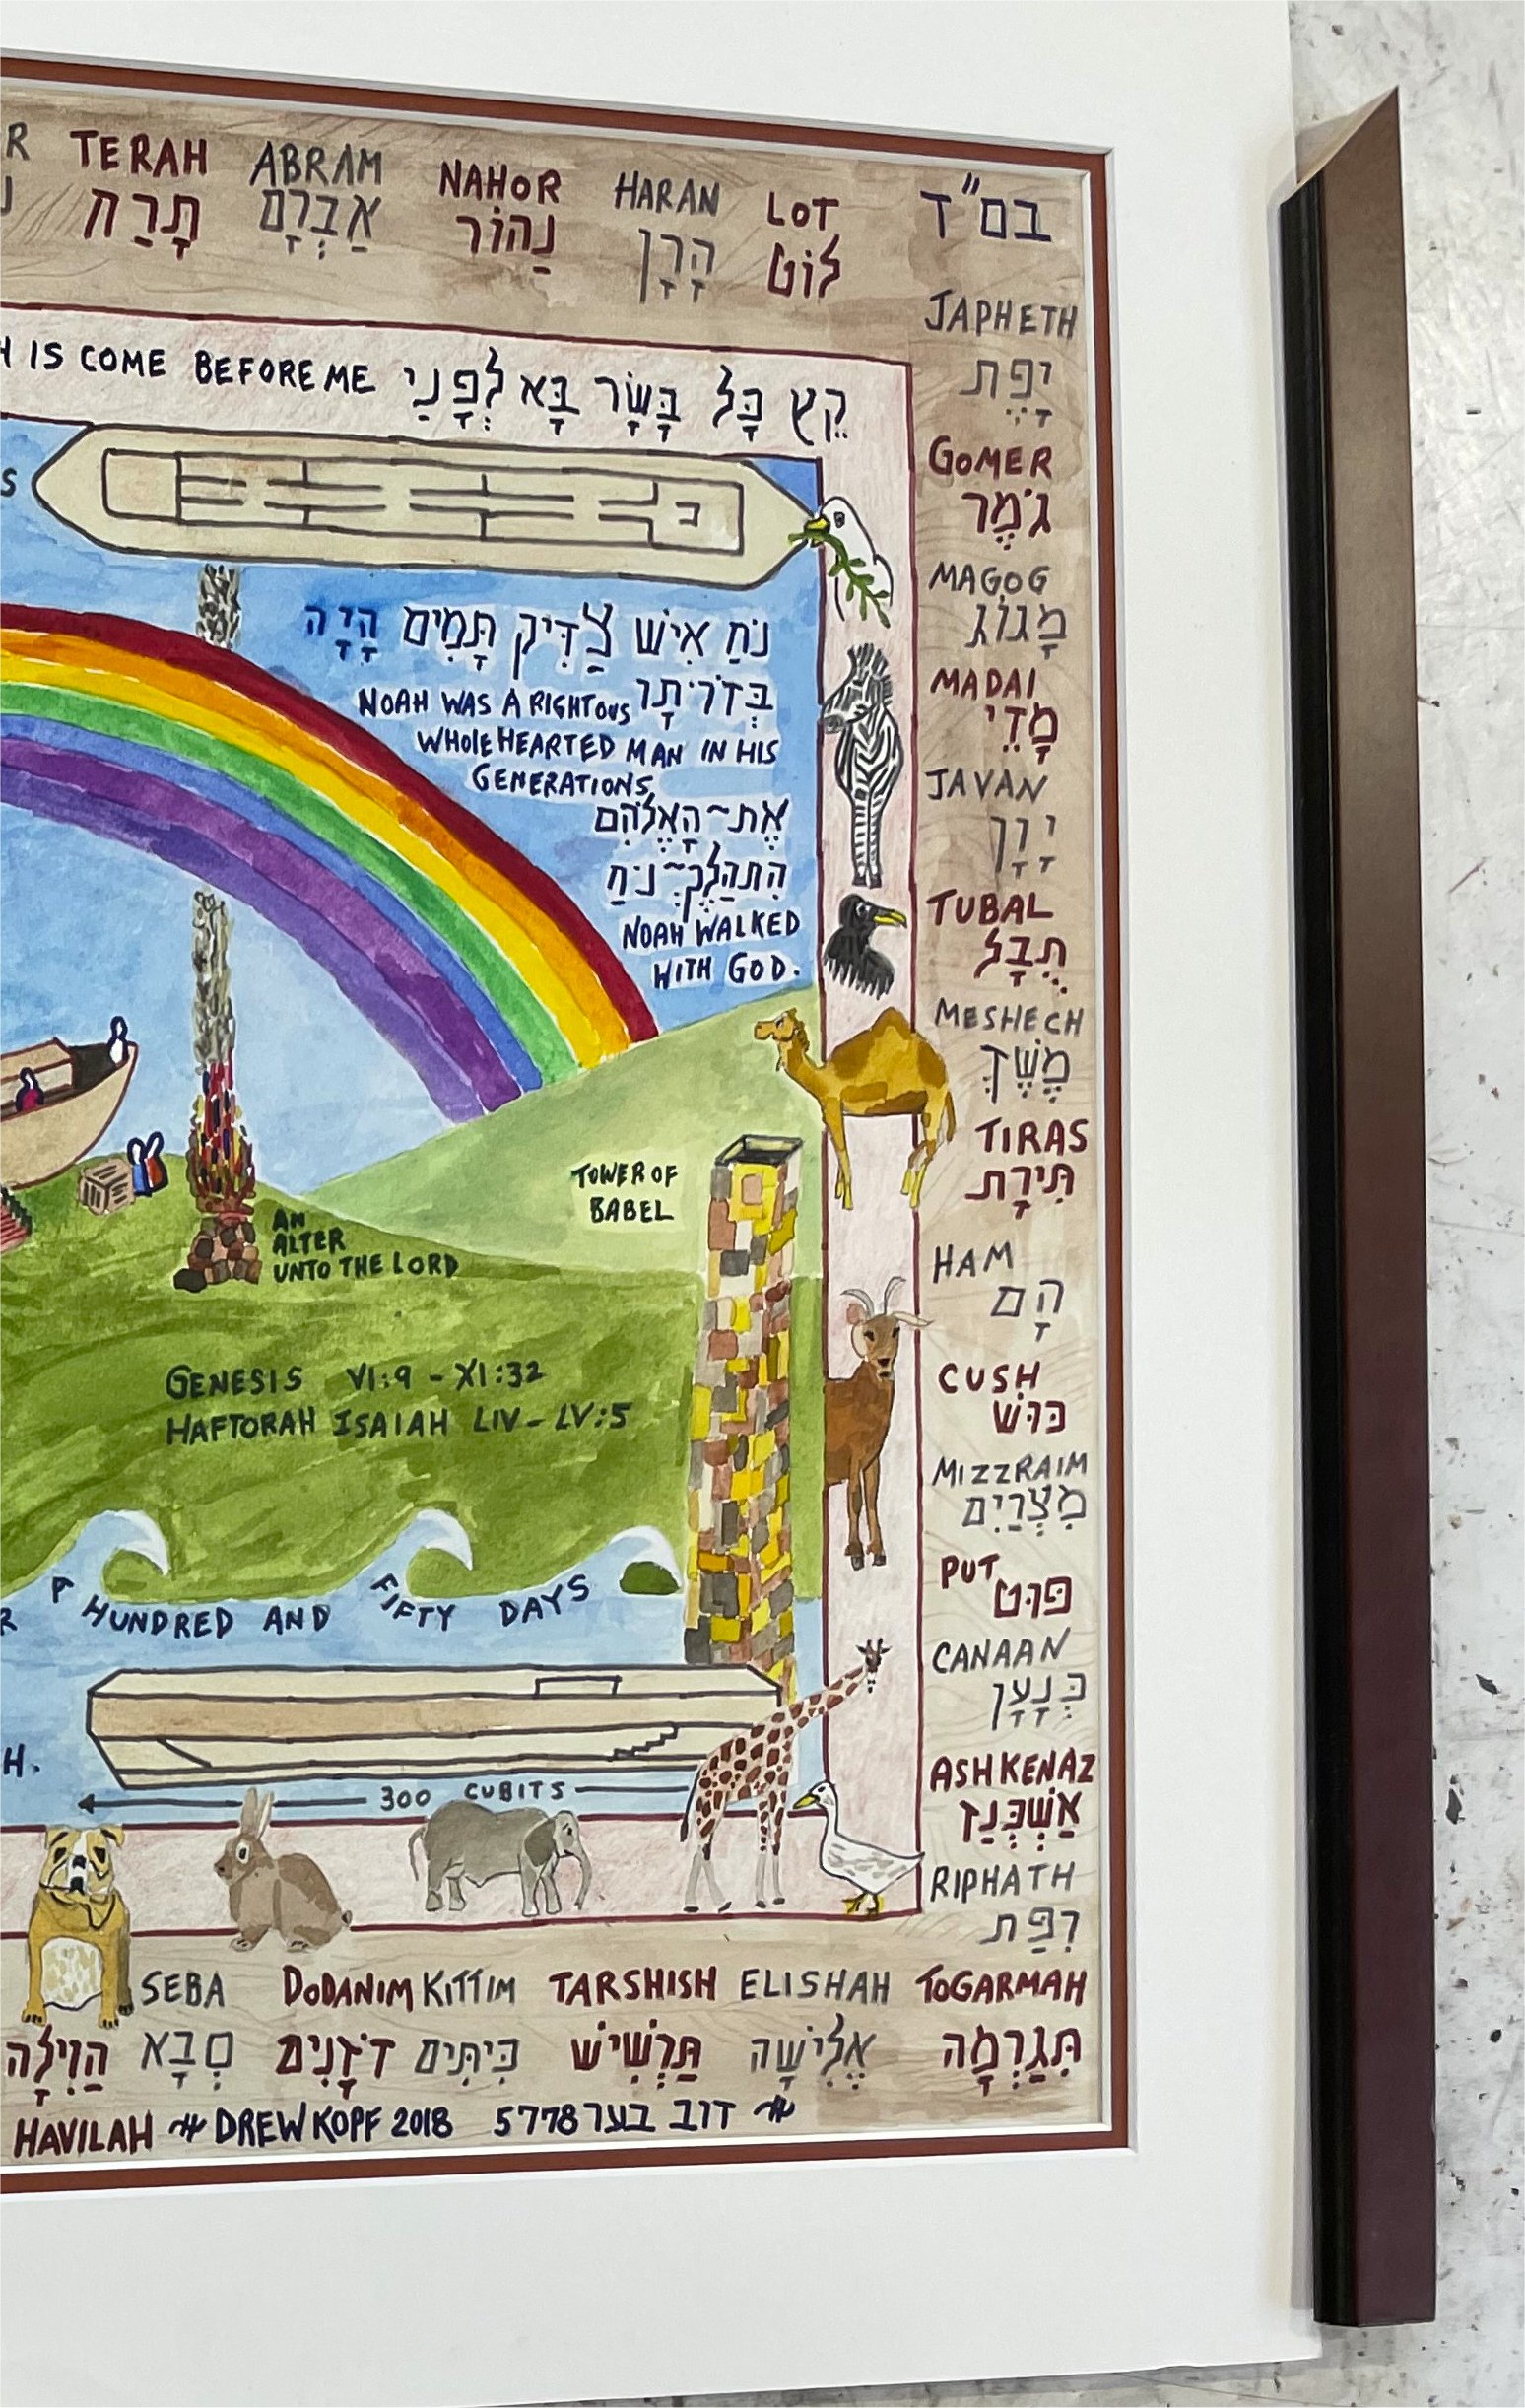 TERAH ABRAM NAHOR HARAN LOT
תָרַח אַבְרָם נַהוֹר הָרָן לוֹט
בם"ד
IS COME BEFORE ME קֵץ כָּל בָּשָׂר בָּא לְפָנַי
נֹחַ אִישׁ צַדִּיק תָּמִים הָיָה
NOAH WAS A RIGHTOUS
WHOLEHEARTED MAN IN HIS
GENERATIONS
אֶת~הָאֱלֹהִם
הִתהַלֶּךְ~נֹחַ
NOAH WALKED
WITH GOD.
TOWER OF
BABEL
AN
ALTER
UNTO THE LORD
GENESIS VI:9 - XI:32
HAFTORAH ISAIAH LIV - LV:5
A HUNDRED AND FIFTY DAYS
300 CUBITS
JAPHETH
יָפֶת
GOMER
גֹּמֶר
MAGOG
מָגוֹג
MADAI
מָדֵי
JAVAN
יָוָן
TUBAL
תֻבָל
MESHECH
מֶשֶׁךְ
TIRAS
תִּירָת
HAM
הָם
CUSH
כּוּשׁ
MIZZRAIM
מִצְרַיִם
PUT
פּוּט
CANAAN
כְּנָעָן
ASHKENAZ
אַשְׁכְּנַז
RIPHATH
רִפַת
SEBA DODANIM KITTIM TARSHISH ELISHAH TOGARMAH
הַוִילָה סְבָא דֹדָנִים כִּיתִּים תַּרְשִׁישׁ אֱלִישָׁה תִּגַרְמָה
HAVILAH DREW KOPF 2018 5778 דוב בער